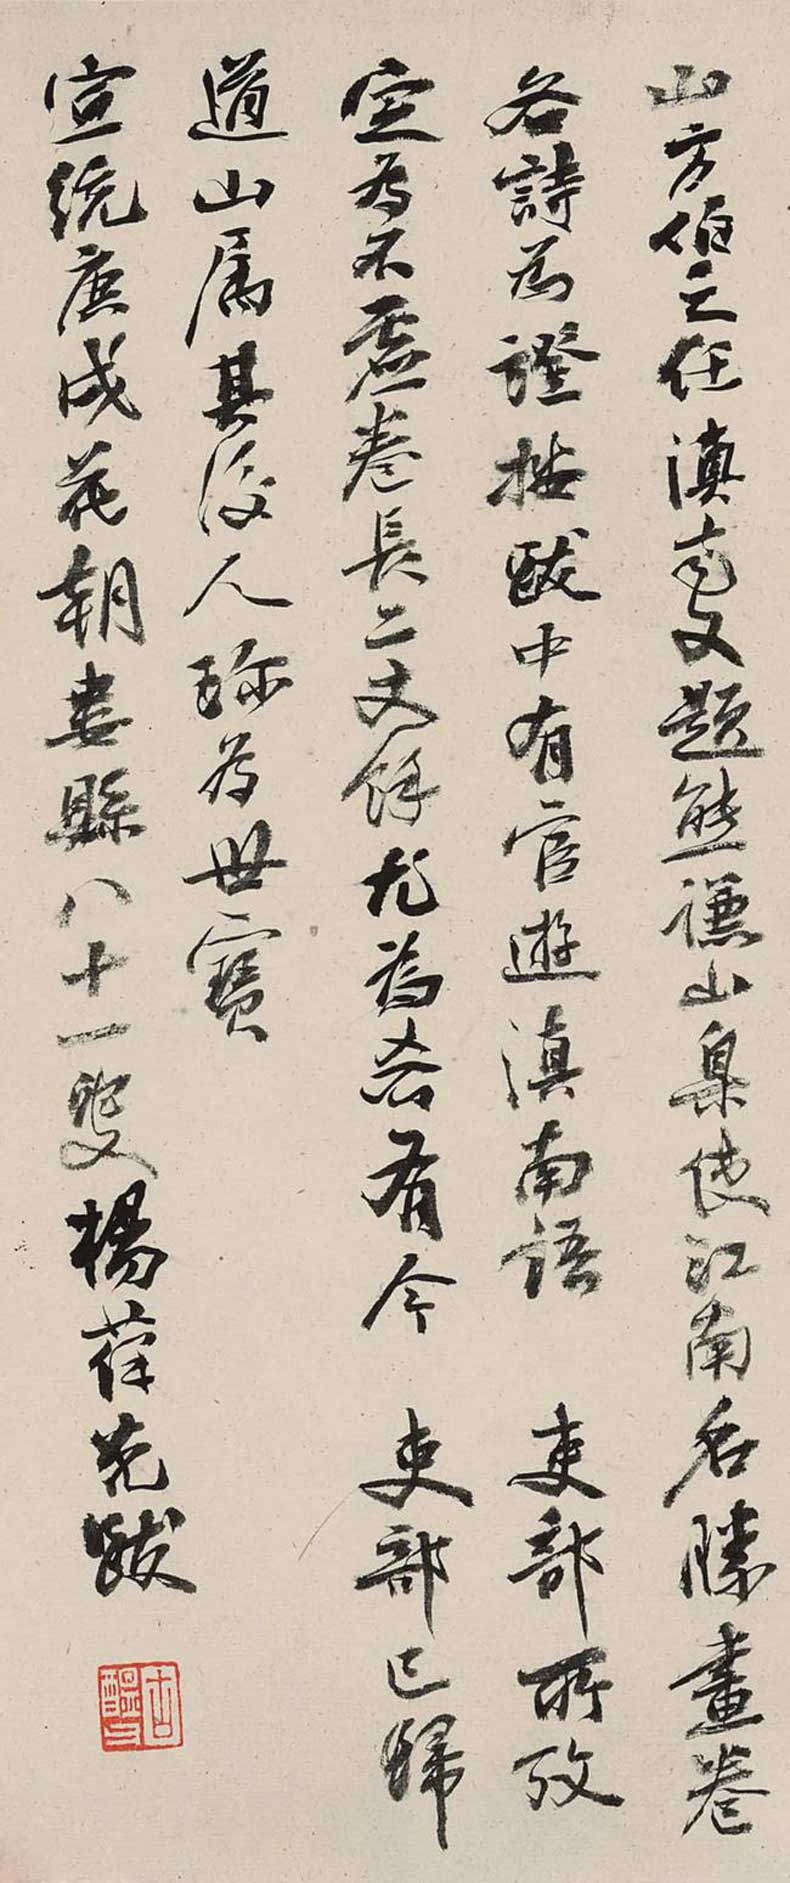 山方伯之任滇南又題熊謙山臬使江南名勝畫卷
各詩為證拈跋中有官遊滇南語 吏部所攷
定為不虛卷長二丈餘尤為希有今 吏部已歸
道山属其後人珎為世寶
宣統庚戌花朝婁縣八十一叟楊葆光跋